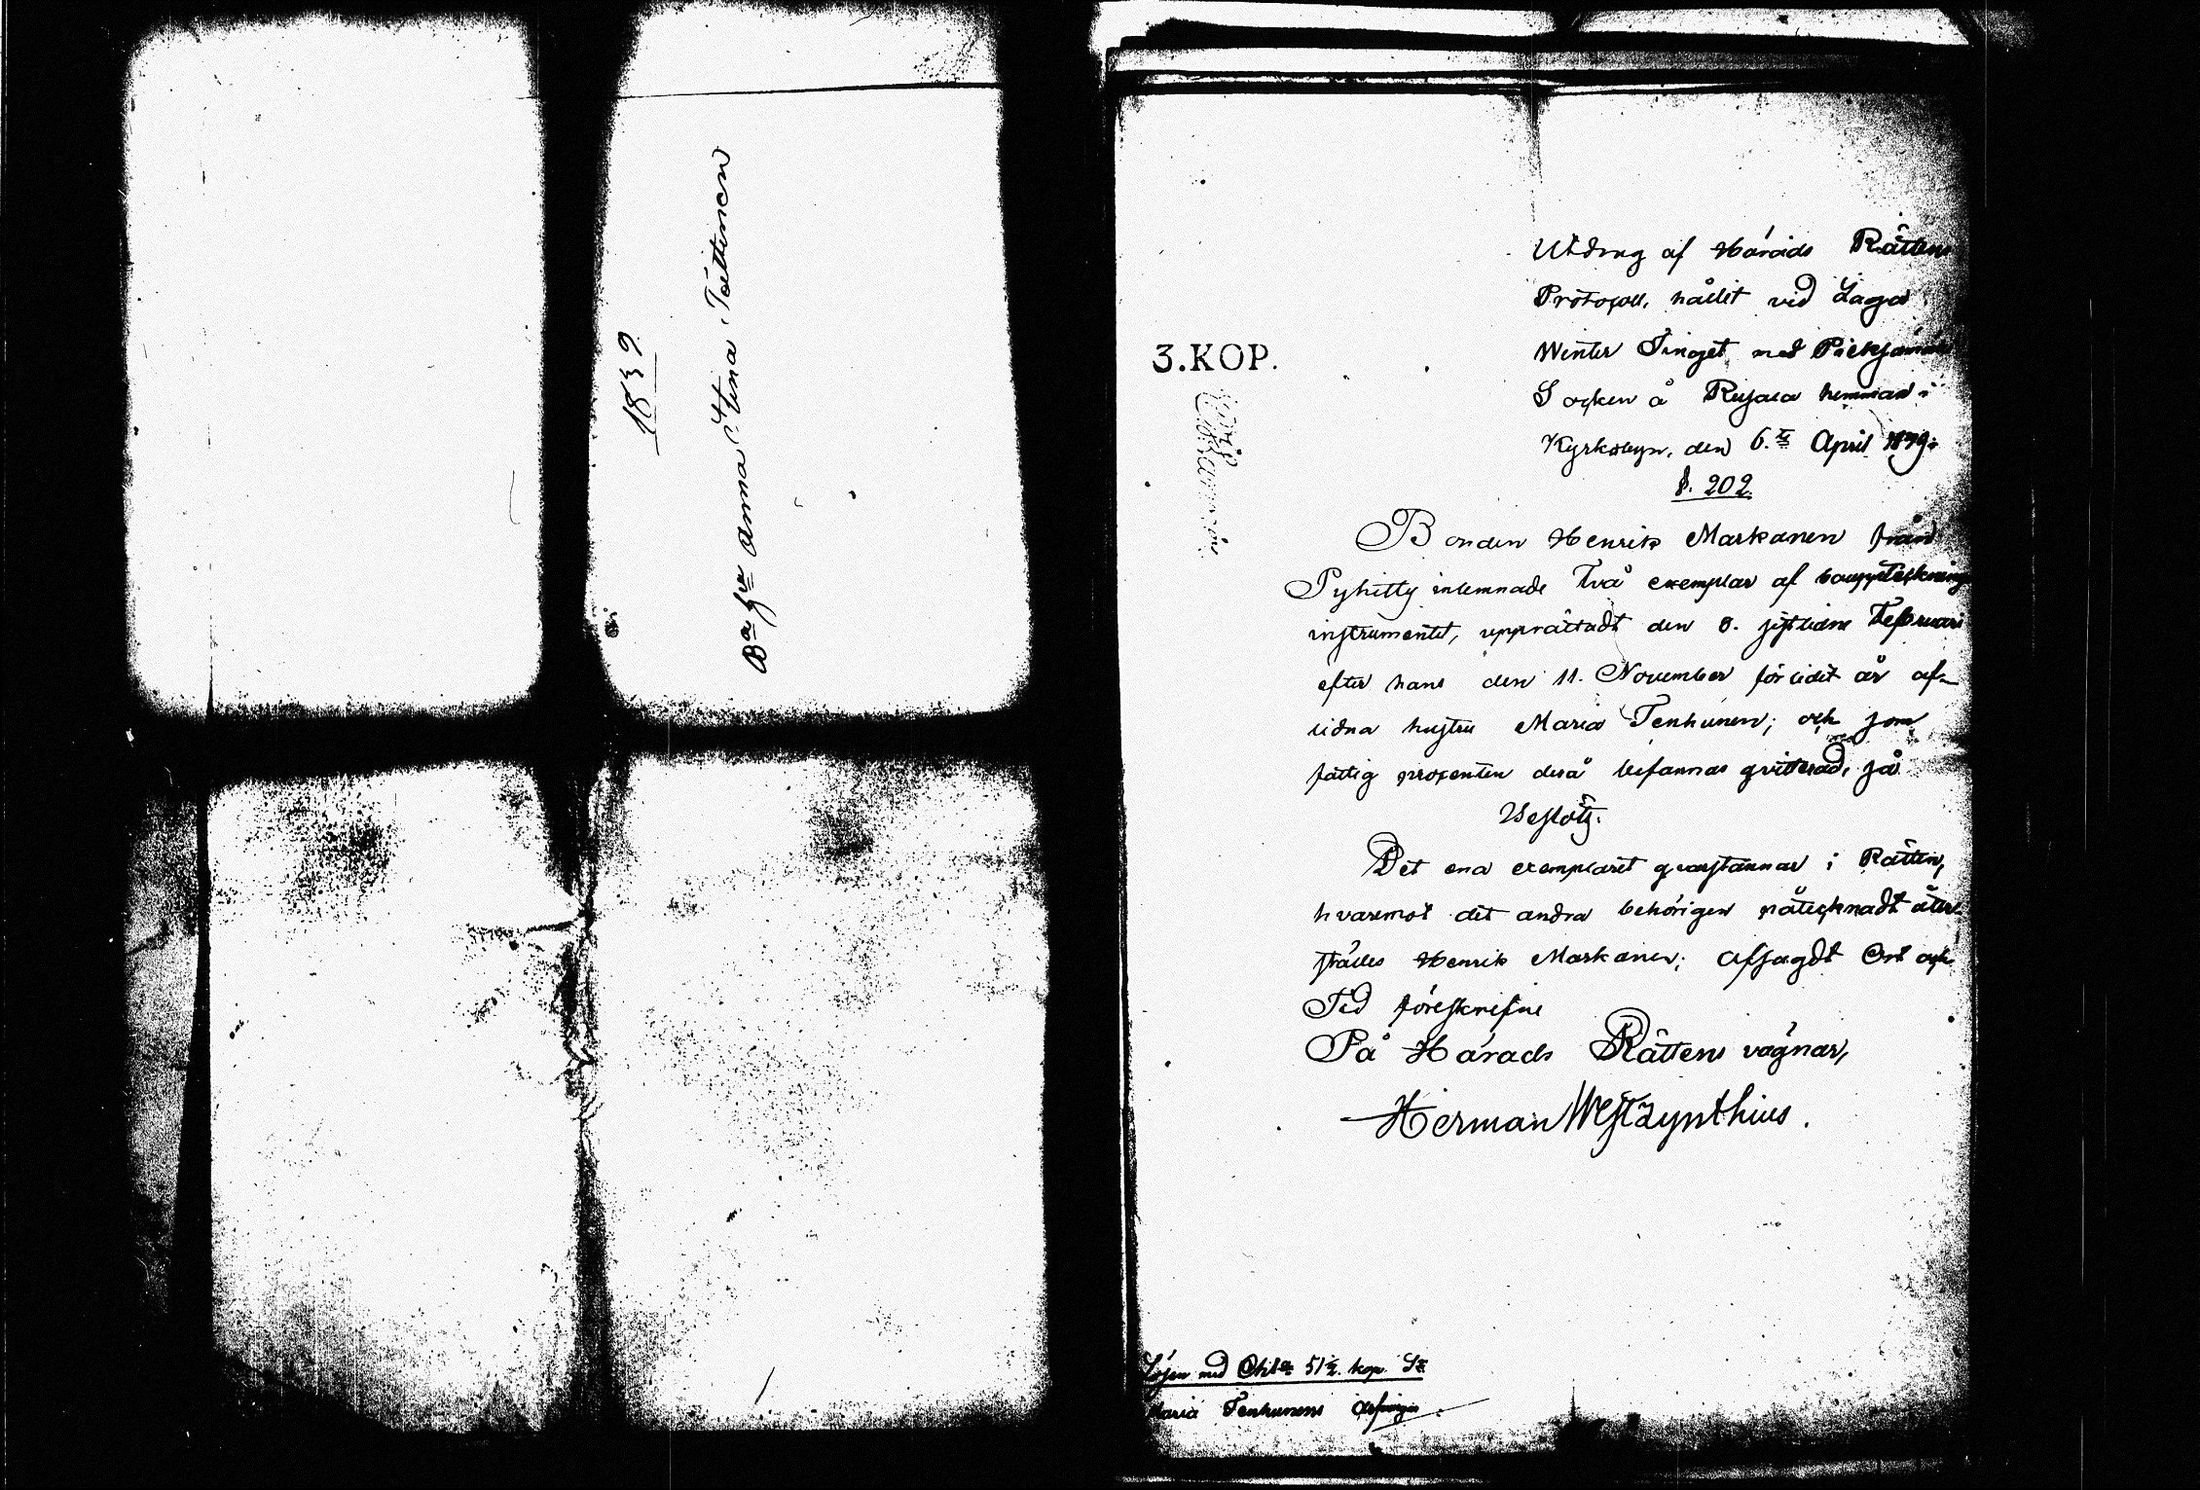 1839
B:a h:u Anna Stina Toittinen
3.KOP.
Utdrag af Härads Rättens
Protocoll, hållit vid Laga
Winter Tinget med Pieksämäki
Socken å Rujala hemman i
Kyrkobyn, den 6.te April 1839.
§. 202
Bonden Henrik Markanen från
Pyhitty inlemnade Två exemplar af bouppteckning
instrumentet, upprättadt den 8. sistledne Februari
efter hans den 11. November förledit år af-
lidna hustru Maria Tenhunen; och som
fattig procenten derå befannas qvitterad, så
Beslöts.
Det ena exemplaret qvarstannar i Rätten,
hvaremot det andra behörigen påtecknadt åter-
ställes Henrik Markanen; Afsagdt Ort och
Tid föreskrefne
På Härads Rättens vägnar,
Herman Westzynthius.
Lösen med 51 1/2. kop. Sr
Maria Tenhunens